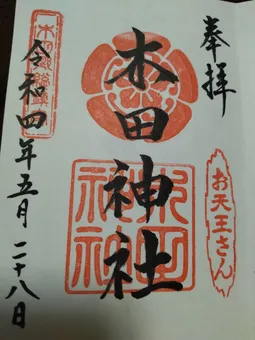 奉拝
お天王さん
木田神社
木田神社
令和四年五月二十八日